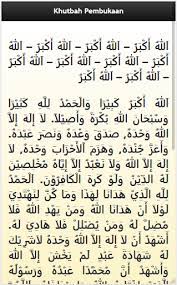 Khutbah Pembukaan
اَللهُ اَكْبَرَ – اَللهُ اَكْبَرَ – اَللهُ
اَكْبَرَ – اَللهُ اَكْبَرَ – اَللهُ اَكْبَرَ
– اَللهُ اَكْبَرَ – اَللهُ اَكْبَرَ – اَللهُ
– اَللهُ اَكْبَرَ – اَللهُ اَكْبَرَ
اَللهُ اَكْبَرَ كَبِيْرًا وَالْحَمْدُ لِلَّهِ كَثِيْرًا
وَسُبْحَانَ اللهِ بُكْرَةً وَأَصِيْلاً. لا إِلهَ إِلاَّ
اللهُ وَحْدَهُ، صَدَقَ وَعْدَهُ وَنَصَرَ عَبْدَهُ،
وَأَعَزَّ جُنْدَهُ، وَهَزَمَ الأَحْزَابَ وَحْدَهُ، لا
إِلهَ إِلاَّ اللهُ وَلا نَعْبُدُ إِلاَّ إِيَّاهُ مُخْلِصِيْنَ
لَهُ الدِّيْنَ وَلَوْ كَرِهَ الْكَافِرُوْنَ. الْحَمْدُ
لِلَّهِ الَّذِيْ هَدَانَا لِهَذَا وَمَا كُنَّا لِنَهْتَدِيَ
لَوْلاَ أَنْ هَدَانَا اللهُ وَمَنْ يَهْدِ اللهُ فَلا
مُضِلَّ لَهُ وَمَنْ يُضْلِلْ فَلا هَادِيَ لَهُ،
أَشْهَدُ أَنْ لا إِلهَ إِلاَّ اللهُ وَحْدَهُ لاَشَرِيْكَ
لَهُ شَهَادَةَ عَبْدٍ لَمْ يَخْشَ إِلاَّ اللهَ
وَأَشْهَدُ أَنَّ مُحَمَّدًا عَبْدُهُ وَرَسُوْلُهُ